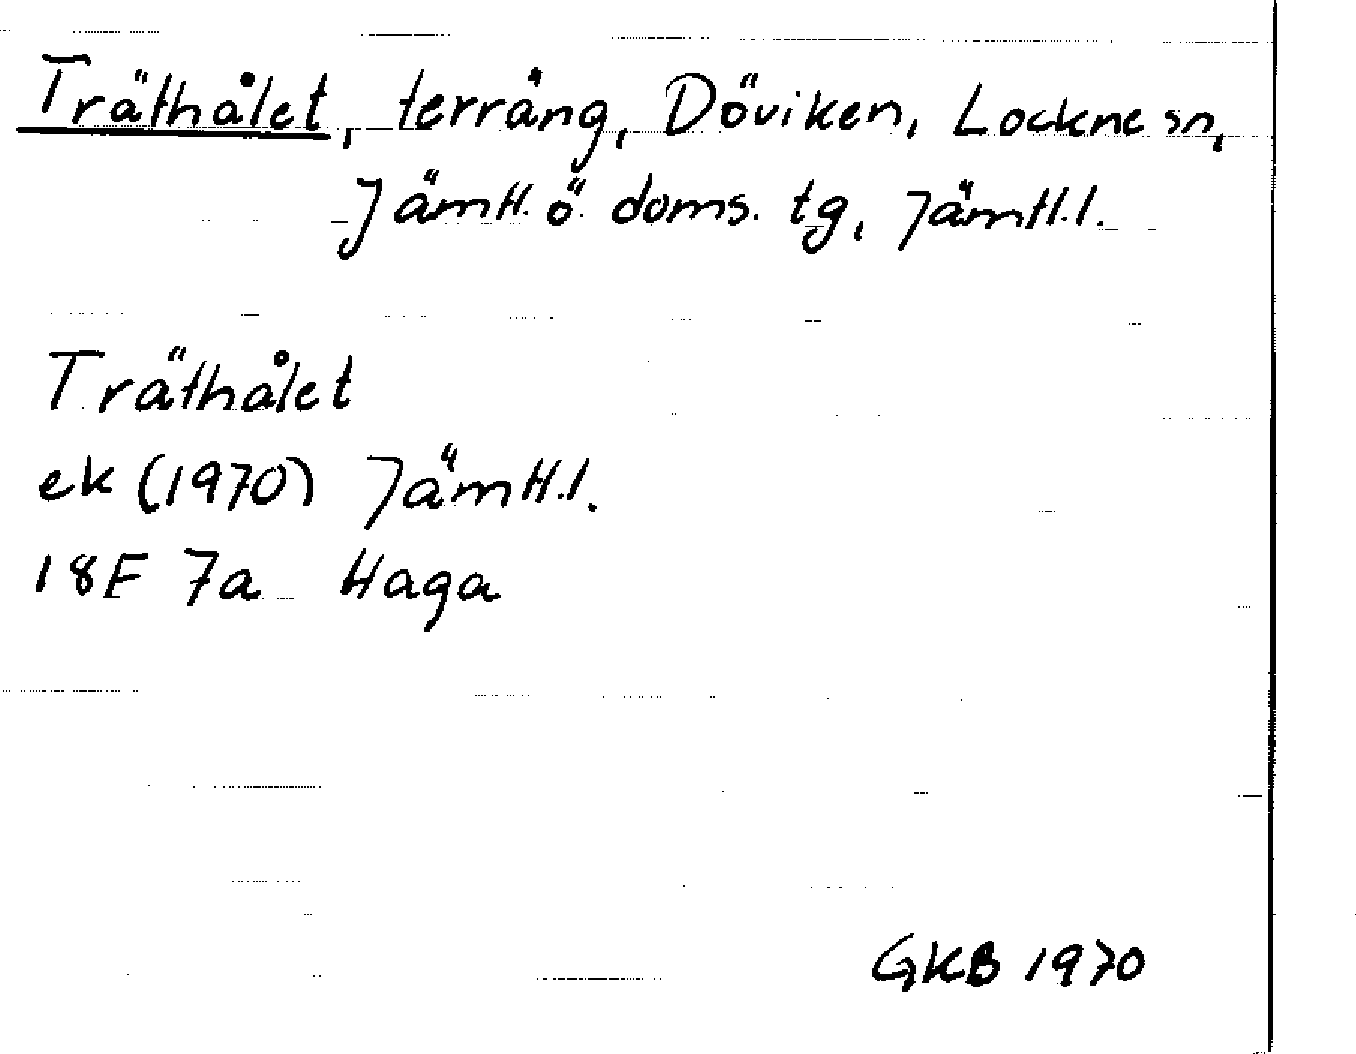 Träthålet, terräng, Döviken, Lockne sn,
Jämtl. ö. doms. tg, Jämtl. l.
Träthålet
ek (1970) Jämtl. l.
18F 7a Haga
GKB 1970